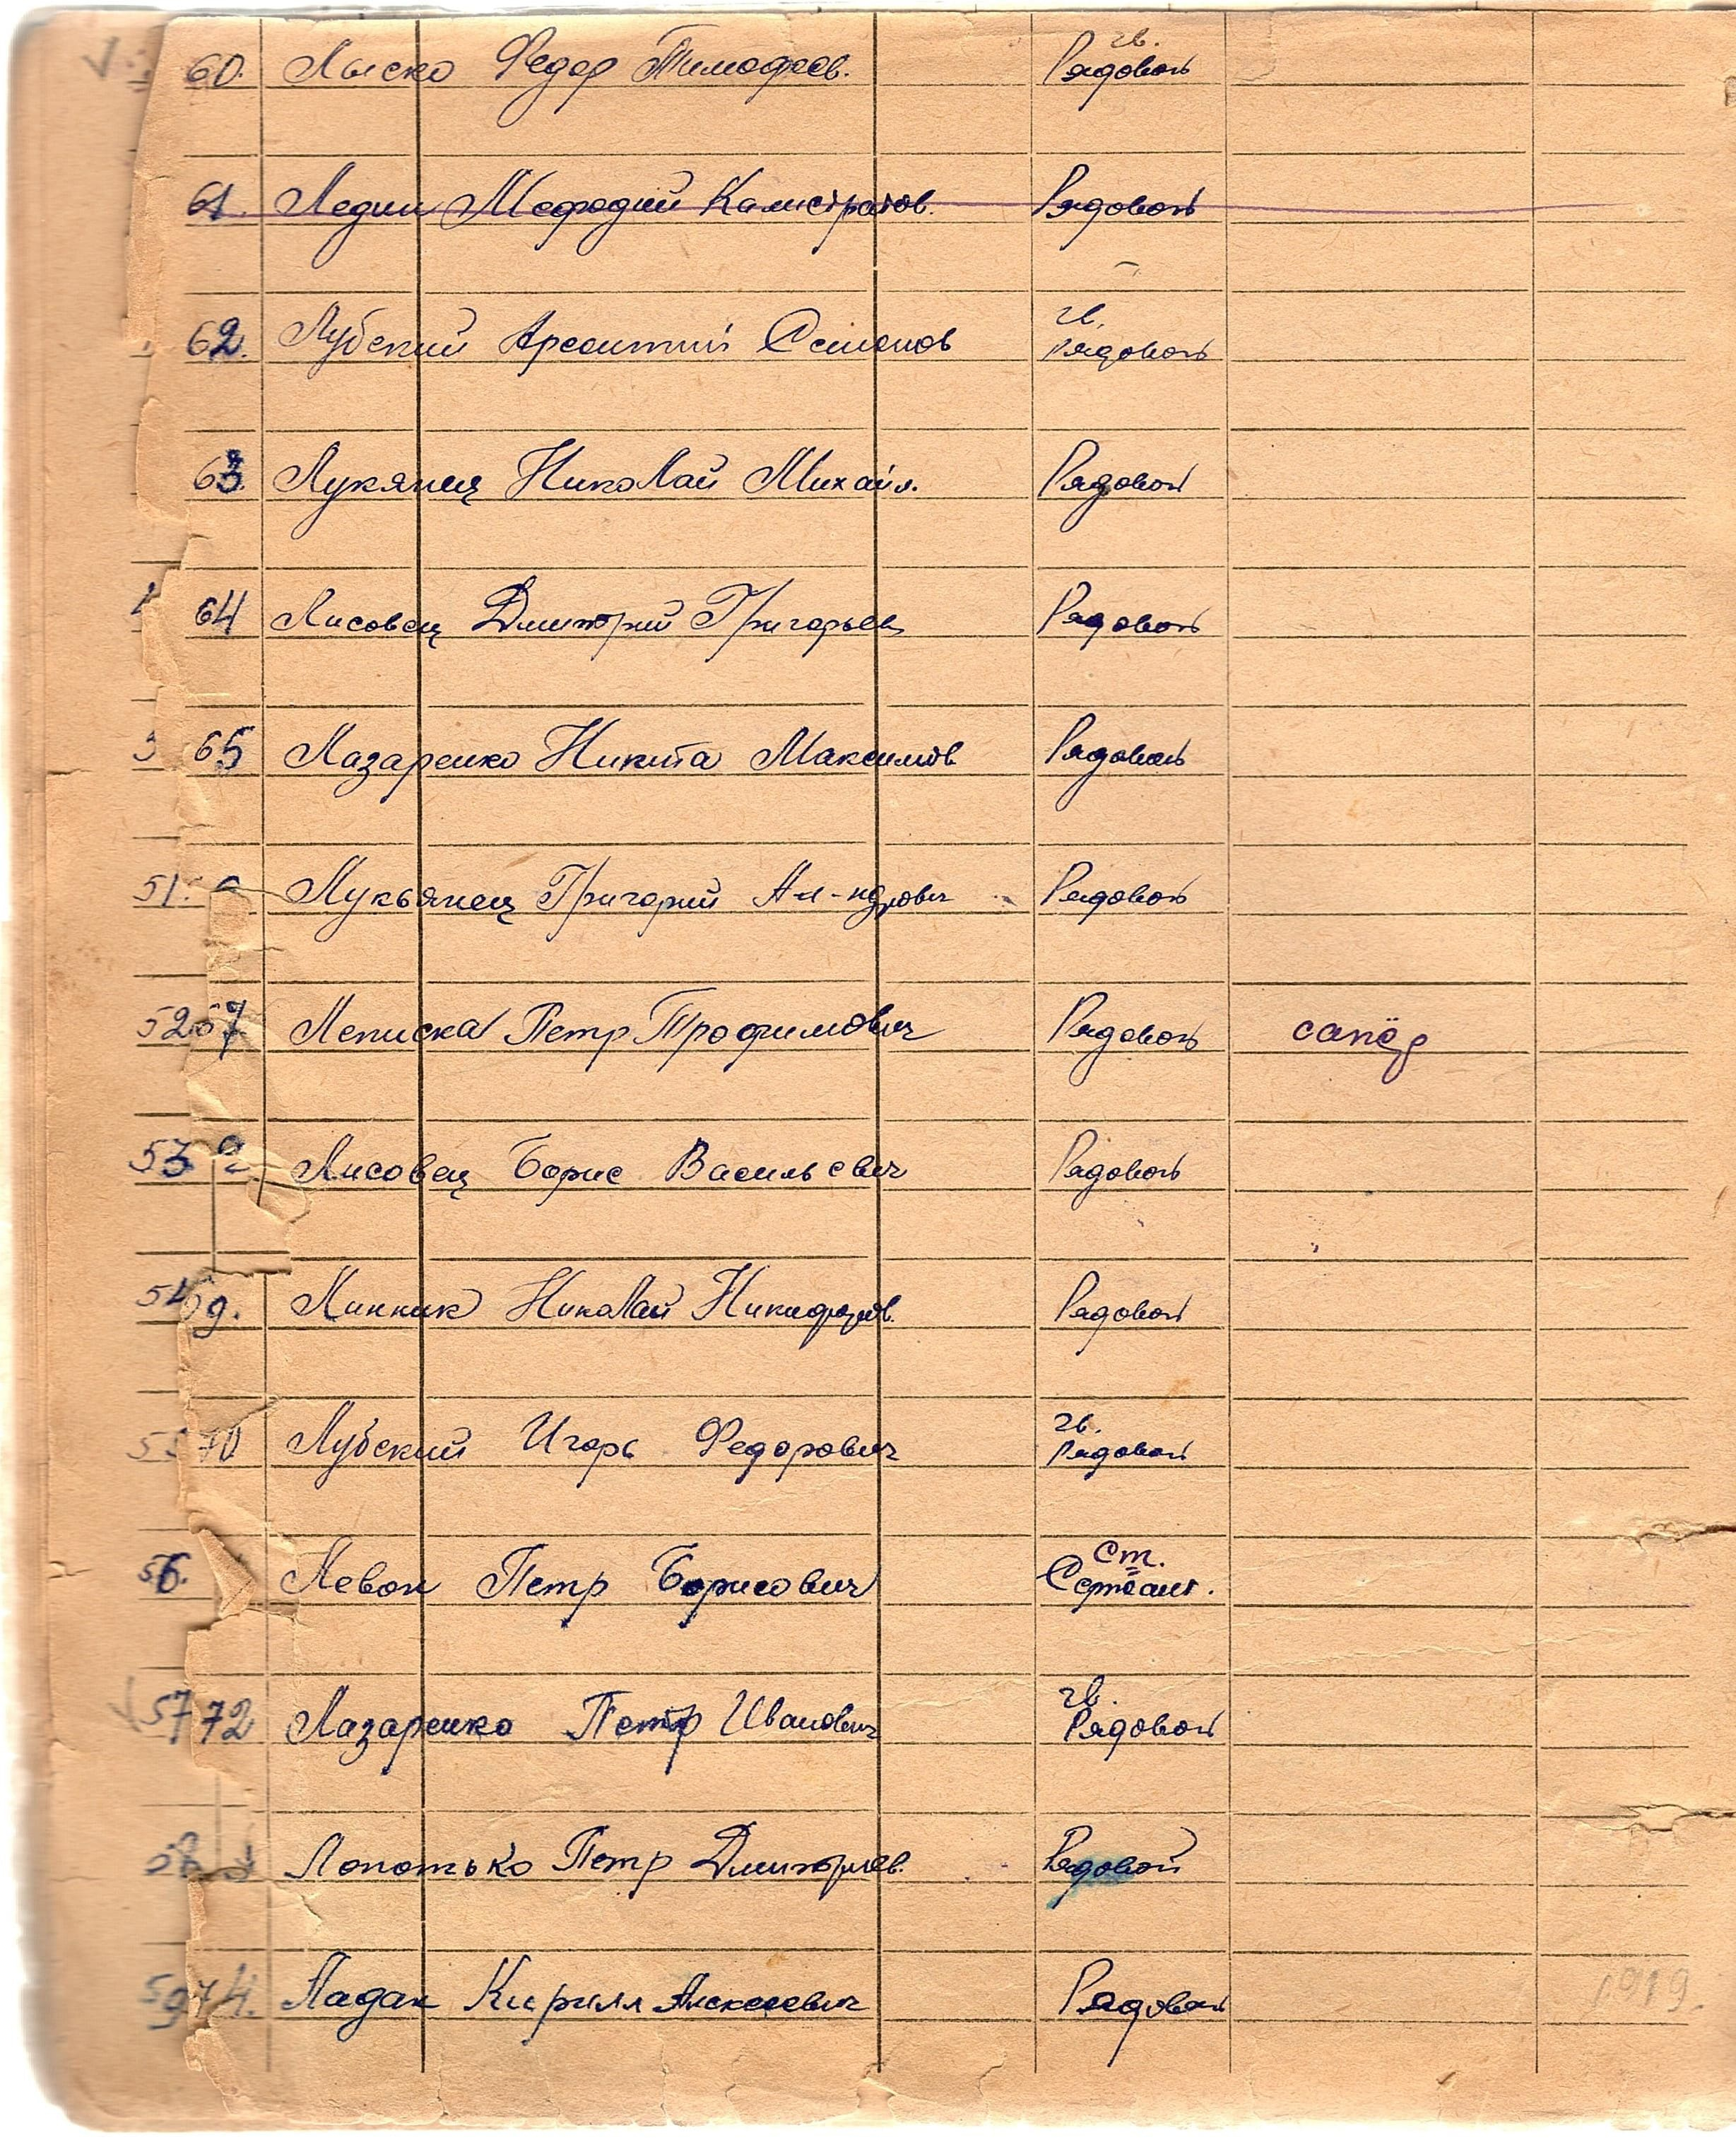 60. Лыско Федор Тимофеев. гв. Рядовой
61. Ледин Мефодий Калистратов. Рядовой
62. Лубский Арсентий Семенов гв. Рядовой
63. Лукянец Николай Михайл. Рядовой
64 Лисовец Дмитрий Григорьев Рядовой
65 Лазаренко Никита Максимов Рядовой
51. Лукьянец Григорий Ал-ндрович Рядовой
52 67 Леписка Петр Трофимович Рядовой сапёр
53 Лисовец Борис Васильевич Рядовой
54 9. Линник Николай Никифоров. Рядовой
55 70 Лубский Игорь Федорович гв. Рядовой
56. Левон Петр Борисович Ст. Сержант.
57 72 Лазаренко Петр Иванович гв. Рядовой
58 Лопотько Петр Дмитриев. Рядовой
59 74. Ладан Кирилл Алексеевич Рядовой 1919.